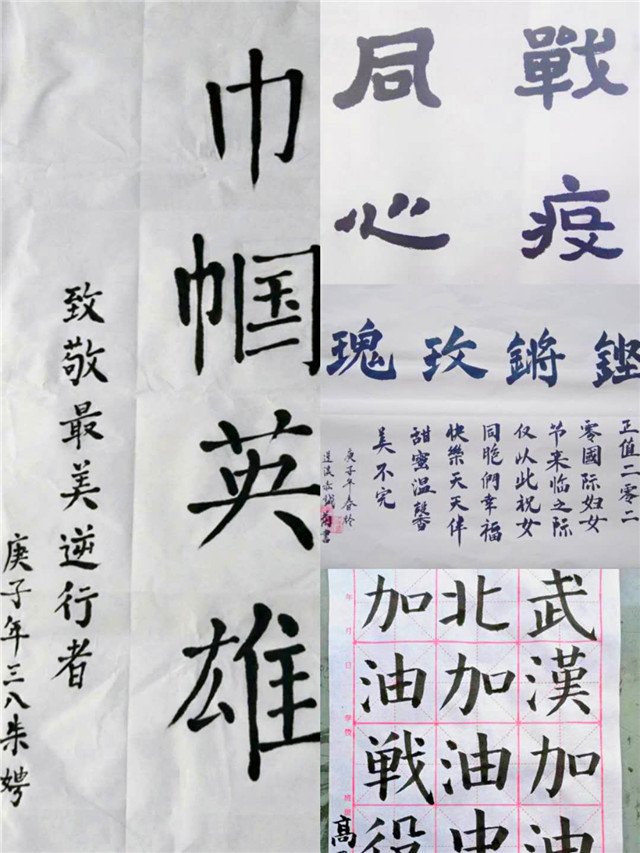 巾帼英雄
致敬最美逆行者
庚子年三八朱娉
戰疫
同心
鏗鏘玫瑰
正值二零二
零國际妇女
节来临之际
仅以此祝女
同胞們幸福
快樂天天伴
甜蜜温馨
美不完
庚子年春於
武漢加油
北加油中
加油戦役
高
年 月 日